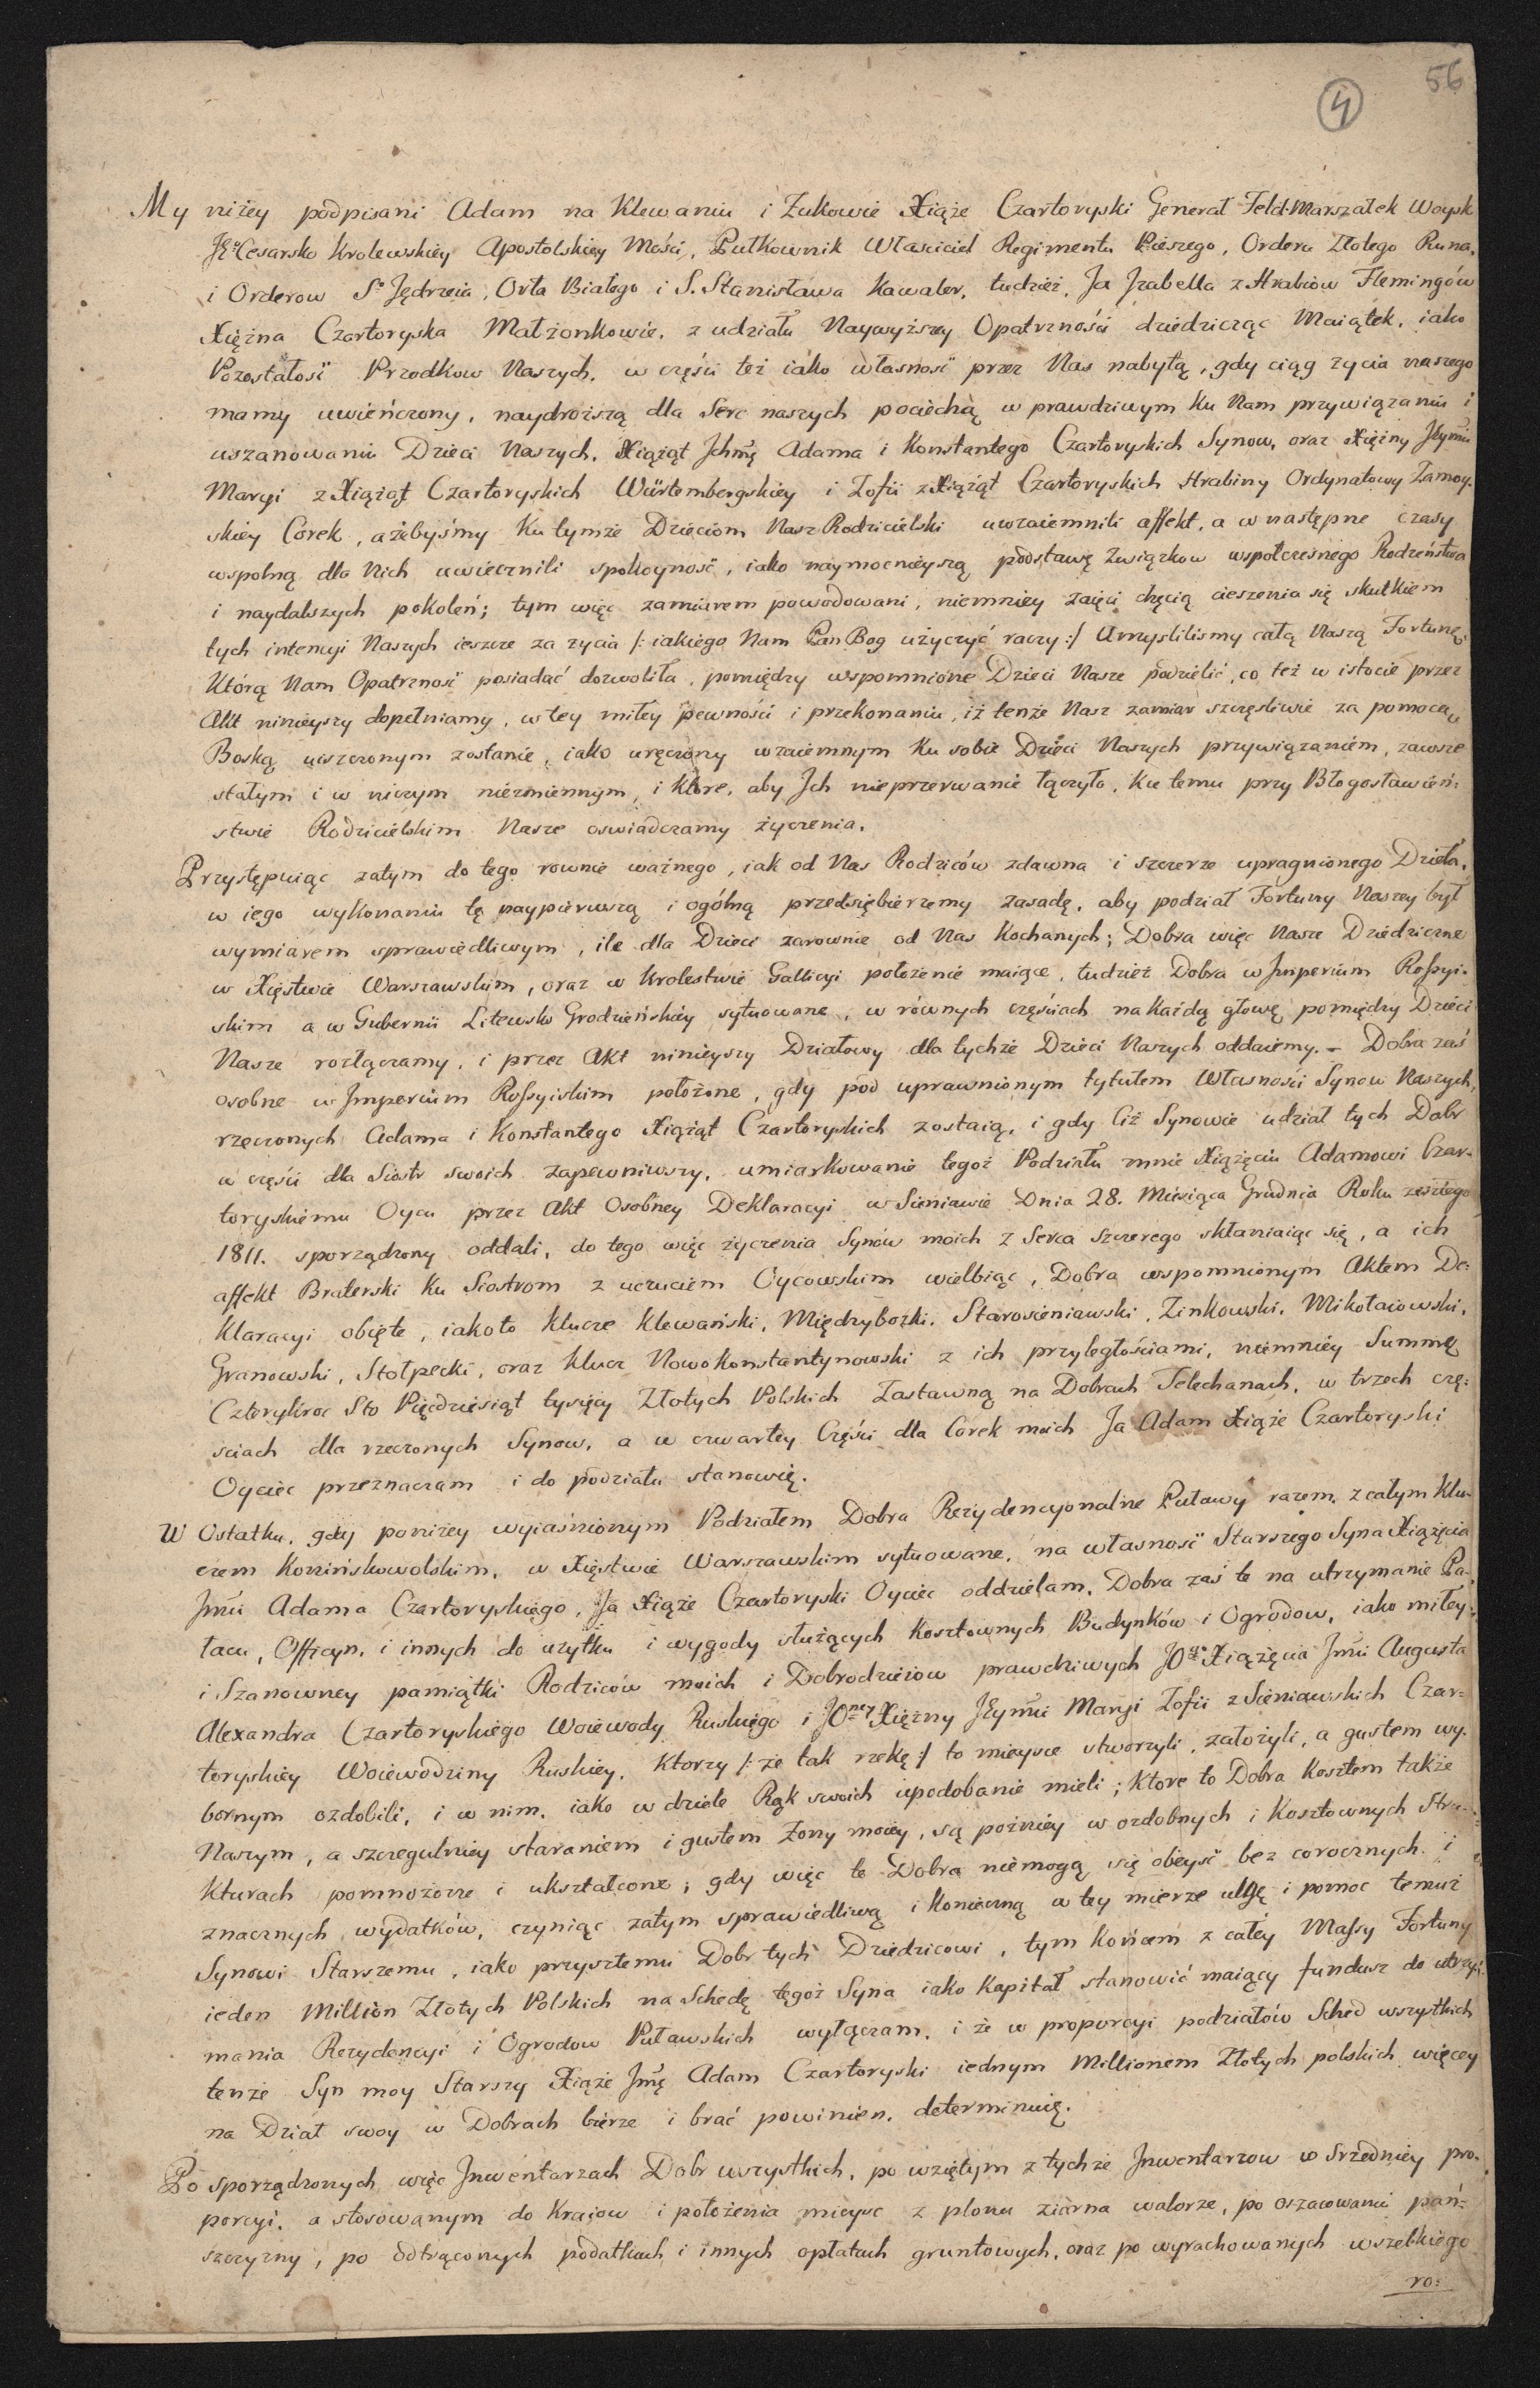 56
4
My niżey podpisani Adam na Klewaniu i Żukowie Xiąże Czartoryski Generał Feld-Marszałek Woysk
Jego Cesarsko Krolewskiey Apostolskiey Mości, Pułkownik Właściciel Regimentu Pieszego, Orderu Złotego Runa,
i Orderow So Jędrzeia, Orła Białego i S. Stanisława Kawaler, tudzież, Ja Izabella z Hrabiow Flemingów
Xiężna Czartoryska Małżonkowie, z udziału Naywyższey Opatrzności dziedzicząc Maiątek, iako
Pozostałość Przodkow Naszych, w części też iako własność przez Nas nabytą, gdy ciąg życia naszego
mamy uwieńczony, naydroższą dla Serc naszych pociechą w prawdziwym ku Nam przywiązaniu i
uszanowaniu Dzieci Naszych, Xiążąt Ichmę Adama i Konstantego Czartoryskich Synow, oraz Xiężny Jeymu
Maryi z Xiążąt Czartoryskich Würtembergskiey i Zofii z Xiążąt Czartoryskich Hrabiny Ordynatowy Zamoy-
skiey Córek, ażebyśmy ku tymże Dzieciom Nasz Rodzicielski uwzaiemnili affekt, a w następne czasy
wspolną dla Nich uwiecznili spokoyność, iako naymocnieyszą podstawę związkow wspołczesnego Rodzeństwa
i naydalszych pokoleń; tym więc zamiarem powodowani, niemniey zaięci chęcią cieszenia się skutkiem
tych intencyi Naszych ieszcze za życia /: iakiego Nam Pan Bog użyczyć raczy :/ Umyslilismy całą Naszą Fortunę,
Którą Nam Opatrzność posiadać dozwoliła, pomiędzy wspomnione Dzieci Nasze podzielić, co też w istocie przez
Akt ninieyszy dopełniamy, w tey miłey pewności i przekonaniu, iż tenże Nasz zamiar szczęśliwie za pomocą
Boską uiszczonym zostanie, iako uręczony wzaiemnym ku sobie Dzieci Naszych przywiązaniem, zawsze
stałym i w niczym niezmiennym, i które, aby Ich nieprzerwanie łączyło, ku temu przy Błogosławień-
stwie Rodzicielskim Nasze oswiadczamy życzenia.
Przystępuiąc zatym do tego rownie ważnego, iak od Nas Rodziców zdawna i szczerze upragnionego Dzieła,
w iego wykonaniu tę naypierwszą i ogólną przedsiębierzemy zasadę, aby podział Fortuny Naszey był
wymiarem sprawiedliwym, ile dla Dzieci zarownie od Nas kochanych; Dobra więc Nasze Dziedziczne
w Xięstwie Warszawskim, oraz w Krolestwie Gallicyi położenie maiące, tudzież Dobra w Imperium Rossyi-
skim a w Gubernii Litewsko Grodzieńskiey sytuowane, w równych częściach na każdą głowę, pomiędzy Dzieci
Nasze rozłączamy, i przez Akt ninieyszy Działowy dla tychże Dzieci Naszych oddaiemy. – Dobra zaś
osobne w Imperium Rossyiskim położone, gdy pod uprawnionym tytułem Własności Synow Naszych,
rzeczonych Adama i Konstantego Xiążąt Czartoryskich zostaią, i gdy Ciż Synowie udział tych Dobr
w części dla Siostr swoich zapewniwszy, umiarkowanie tegoż Podziału mnie Xiążęciu Adamowi Czar-
toryskiemu Oycu przez Akt Osobney Deklaracyi w Sieniawie Dnia 28. Miesiąca Grudnia Roku zeszłego
1811. sporządzony oddali, do tego więc życzenia Synów moich z Serca szczerego skłaniaiąc się, a ich
affekt Braterski ku Siostrom z uczuciem Oycowskim wielbiąc, Dobra wspomnionym Aktem De-
klaracyi obięte, iakoto Klucze Klewański, Międzybożki, Starosieniawski, Zinkowski, Mikołaiowski,
Granowski, Stołpecki, oraz Klucz Nowokonstantynowski z ich przyległościami, niemniey Summę
Czterykroc Sto Pięcdziesiąt tysięcy Złotych Polskich Zastawną na Dobrach Telechanach, w trzech czę-
sciach dla rzeczonych Synow, a w czwartey Części dla Corek moich Ja Adam Xiąże Czartoryski
Oyciec przeznaczam i do podziału stanowię.
W Ostatku, gdy poniżey wyiaśnionym Podziałem Dobra Rezydencyonalne Puławy razem z całym Klu-
czem Konińskowolskim, w Xięstwie Warszawskim sytuowane, na własność Starszego Syna Xiążęcia
Jmci Adama Czartoryskiego, Ja Xiąże Czartoryski Oyciec oddzielam, Dobra zaś te na utrzymanie Pa-
łacu, Officyn, i innych do użytku i wygody służących kosztownych Budynków i Ogrodow, iako miłey
i Szanowney pamiątki Rodziców moich i Dobrodzieiow prawdziwych JOgo Xiążęcia Jmci Augusta
Alexandra Czartoryskiego Woiewody Ruskiego i JOney Xiężny Jeymci Maryi Zofii z Sieniawskich Czar-
toryskiey Woiewodziny Ruskiey, ktorzy /: że tak rzekę :/ to mieysce stworzyli, założyli, a gustem wy-
bornym ozdobili, i w nim, iako w dziele Rąk swoich upodobanie mieli; ktore to Dobra kosztem także
Naszym, a szczegulniey staraniem i gustem Żony moiey, są pożniey w ozdobnych i kosztownych Stru-
kturach pomnożone i ukształcone; gdy więc te Dobra niemogą się obeyść bez corocznych i
znacznych wydatków, czyniąc zatym sprawiedliwą i konieczną w tey mierze ulgę i pomoc temuż
Synowi Starszemu, iako przyszłemu Dobr tych Dziedzicowi, tym końcem z całey Massy Fortuny
ieden Million Złotych Polskich na Schedę tegoż Syna iako Kapitał stanowić maiący fundusz do utrzy-
mania Rezydencyi i Ogrodow Puławskich wyłączam, i że w proporcyi podziałów Sched wszystkich
tenże Syn moy Starszy Xiąże Jmć Adam Czartoryski iednym Millionem Złotych polskich więcey
na Dział swoy w Dobrach bierze i brać powinien, determinuię.
Po sporządzonych więc Inwentarzach Dobr wszystkich, po wziętym z tychże Inwentarzow w srzedniey pro-
porcyi, a stosowanym do Kraiow i położenia mieysc z plonu ziarna walorze, po oszacowaniu pań-
szczyzny, po odtrąconych podatkach i innych opłatach gruntowych, oraz po wyrachowanych wszelkiego
ro: